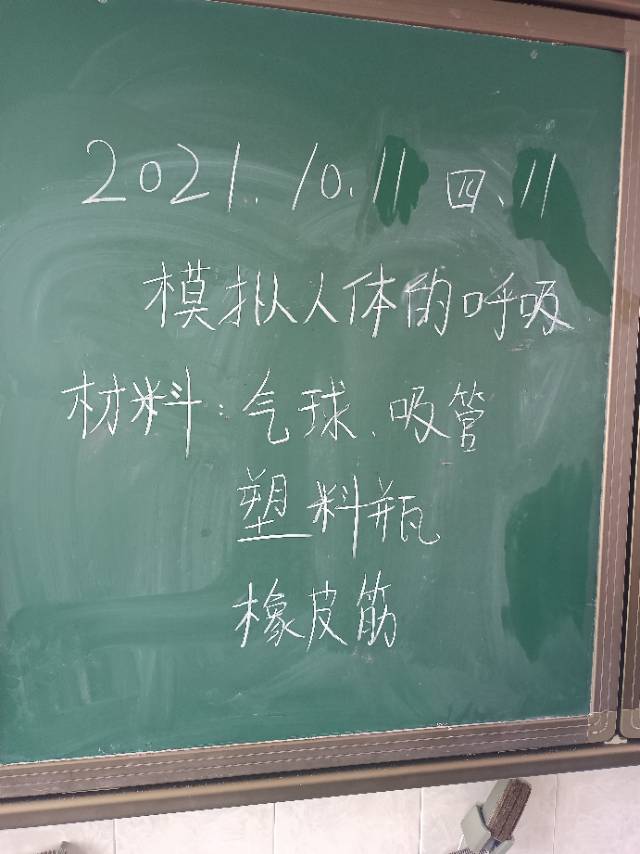 2021.10.11 四、11
模拟人体的呼吸
材料：气球、吸管
塑料瓶
橡皮筋